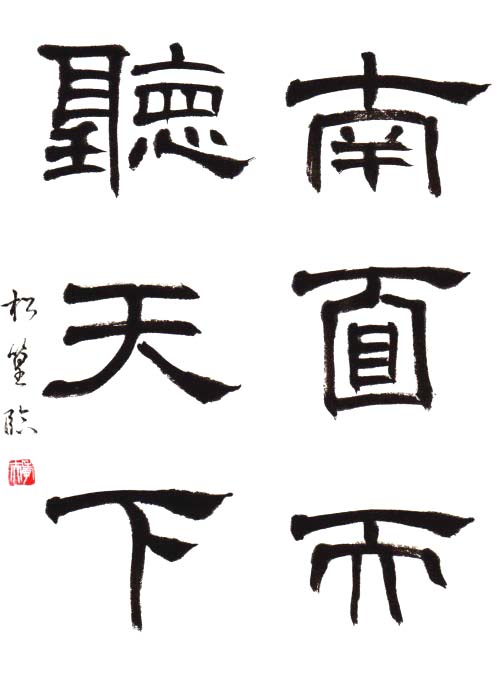 南面而
聽天下
松篁臨